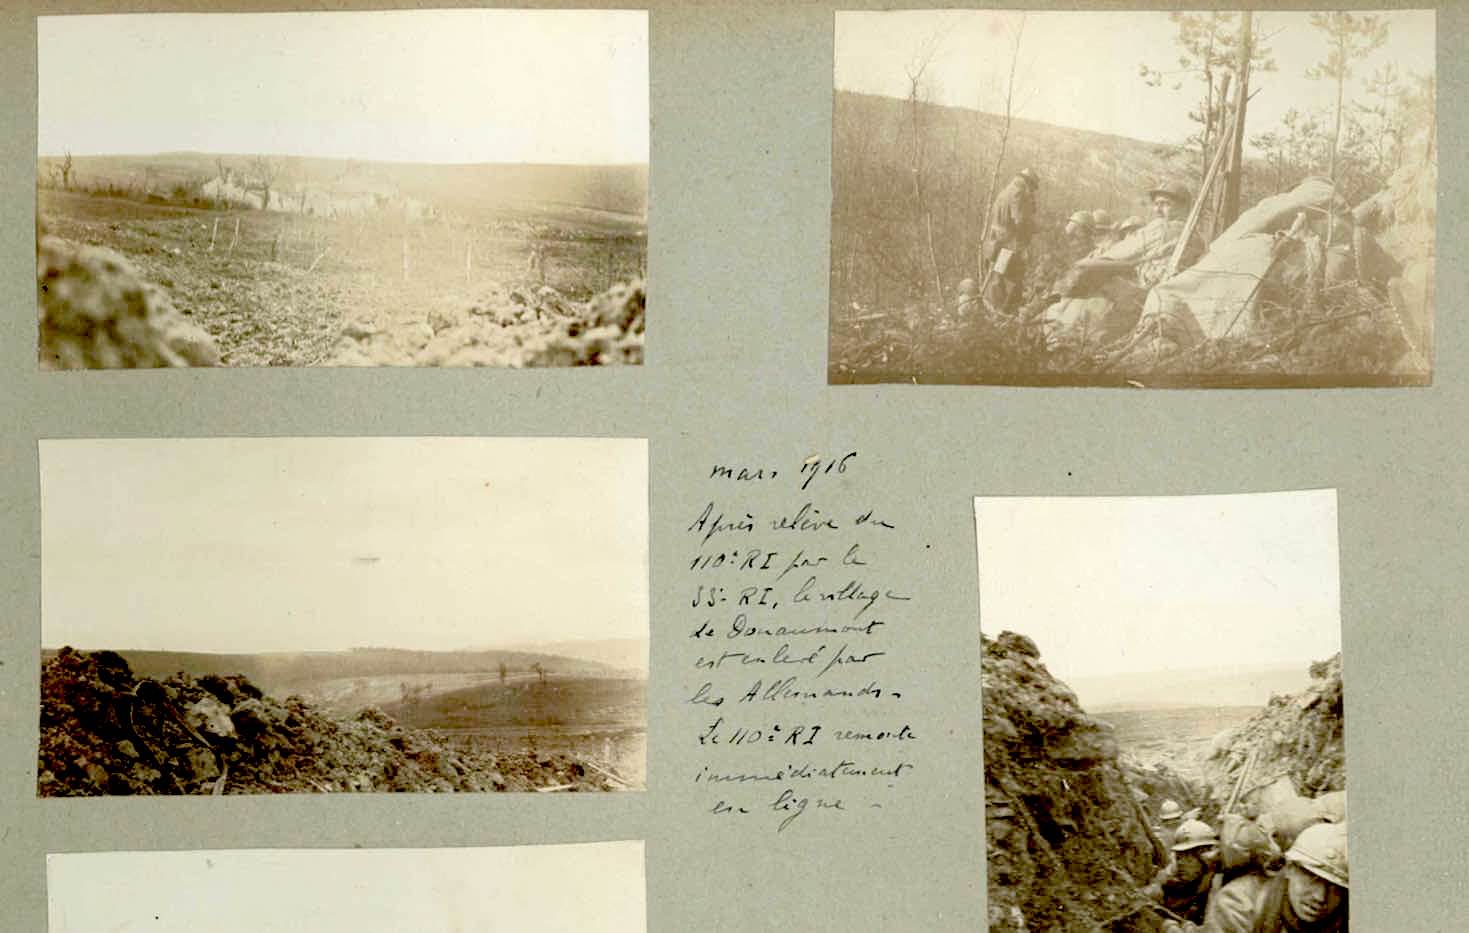 mars 1916
Après relève du
110e RI par le
33e RI, le village
de Douaumont
est enlevé par
les Allemands -
Le 110e RI remonte
immédiatement
en ligne -